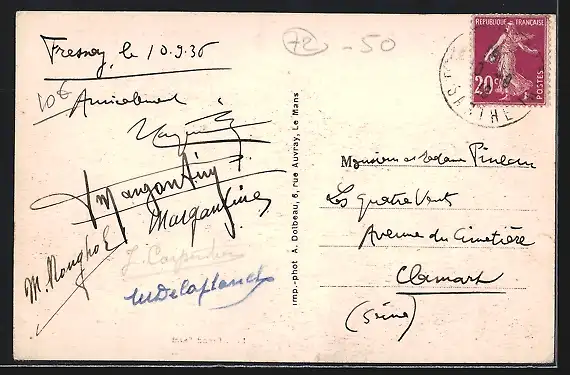 Fresnay, le 10.9.36
72 - 50
10€
Amicalement
Margantin
Margantin
J. Carpentier
M Delaplanche
Imp.-phot A. Dolbeau, 6, rue Auvray, Le Mans
REPUBLIQUE FRANÇAISE
20c
POSTES
SARTHE
Monsieur et Madame Pineau
Les Quatre Vents
Avenue du Cimetière
Clamart
(Seine)